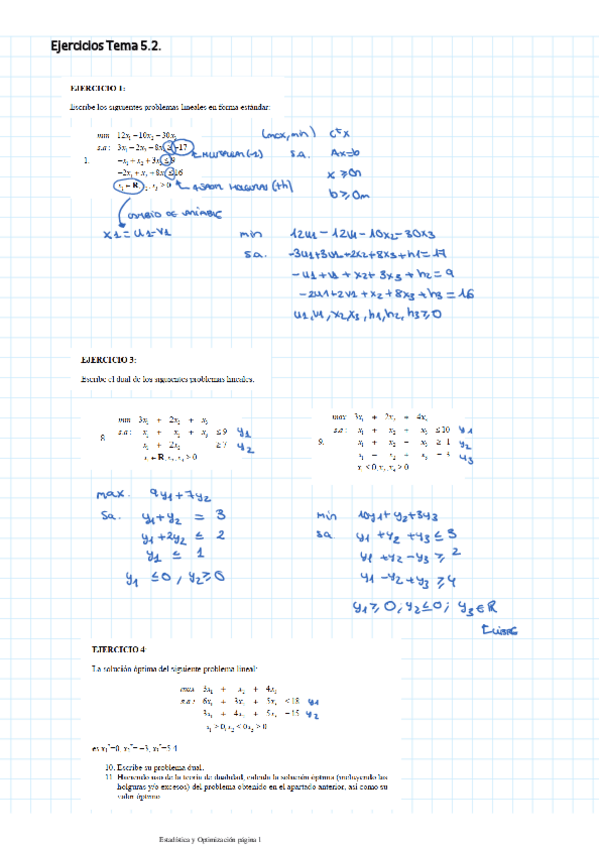 Ejercicios Tema 5.2.
EJERCICIO 1:
Escribe los siguientes problemas lineales en forma estándar:
min 12x₁ − 10x₂ − 30x₃
s.a: 3x₁ − 2x₂ − 8x₃ ≥ −17
1. −x₁ + x₂ + 3x₃ ≤ 9
−2x₁ + x₂ + 8x₃ ≤ 16
(max, min) cᵗx
s.a. Ax=b
x ≥ 0n
b ≥ 0m
MULTIPLICAR (-1)
AÑADIR HOLGURAS (+h)
CAMBIO DE VARIABLE
x1 = u1-v1
min 12u1 − 12v1 − 10x2 − 30x3
s.a. -3u1+3v1+2x2+8x3+h1=17
-u1+v1+x2+3x3+h2=9
-2u1+2v1+x2+8x3+h3=16
u1,v1,x2,x3,h1,h2,h3≥0
EJERCICIO 3:
Escribe el dual de los siguientes problemas lineales.
min 3x₁ + 2x₂ + x₃
s.a: x₁ + x₂ + x₃ ≤ 9 y1
8. x₁ + 2x₂ ≥ 7 y2
max. 9y1+7y2
sa. y1+y2 = 3
y1+2y2 ≤ 2
y1 ≤ 1
y1 ≤0, y2≥0
max 3x₁ + 2x₂ − 4x₃
s.a: x₁ + x₂ − x₃ ≤ 10 y1
9. x₁ + x₂ − x₃ ≥ 1 y2
y3
min 10y1+y2+3y3
sa y1+y2+y3 ≤ 3
y1+y2-y3 ≥ 2
y1-y2+y3 ≥ 4
y1≥0, y2≤0, y3∈R
LIBRE
EJERCICIO 4:
La solución óptima del siguiente problema lineal:
max 5x₁ + x₂ + 4x₃
s.a: 6x₁ + 3x₂ + 5x₃ ≤ 18 y1
3x₁ + 4x₂ + 5x₃ = 15 y2
10. Escribe su problema dual.
11. Haciendo uso de la teoría de dualidad, calcula la solución óptima (incluyendo las
holguras y/o excesos) del problema obtenido en el apartado anterior, así como su
valor óptimo.
Estadística y Optimización página 1